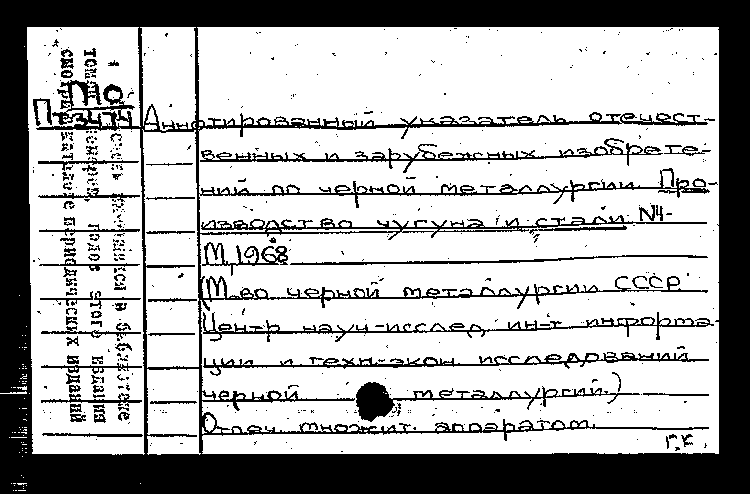 ПО
П73474
Аннотированный указатель отечест-
венных и зарубежных изобрете-
ний по черной металлургии. Про-
изводство чугуна и стали №4-
М, 1968
(М-во черной металлургии СССР.
Центр науч-исслед, ин-т информа-
ции и техн-экон. исследований
черной металлургии.)
Отпеч. множит. аппаратом.
Г.К.
томах
смотри
голос этого издания
периодических изданий
в библиотеке